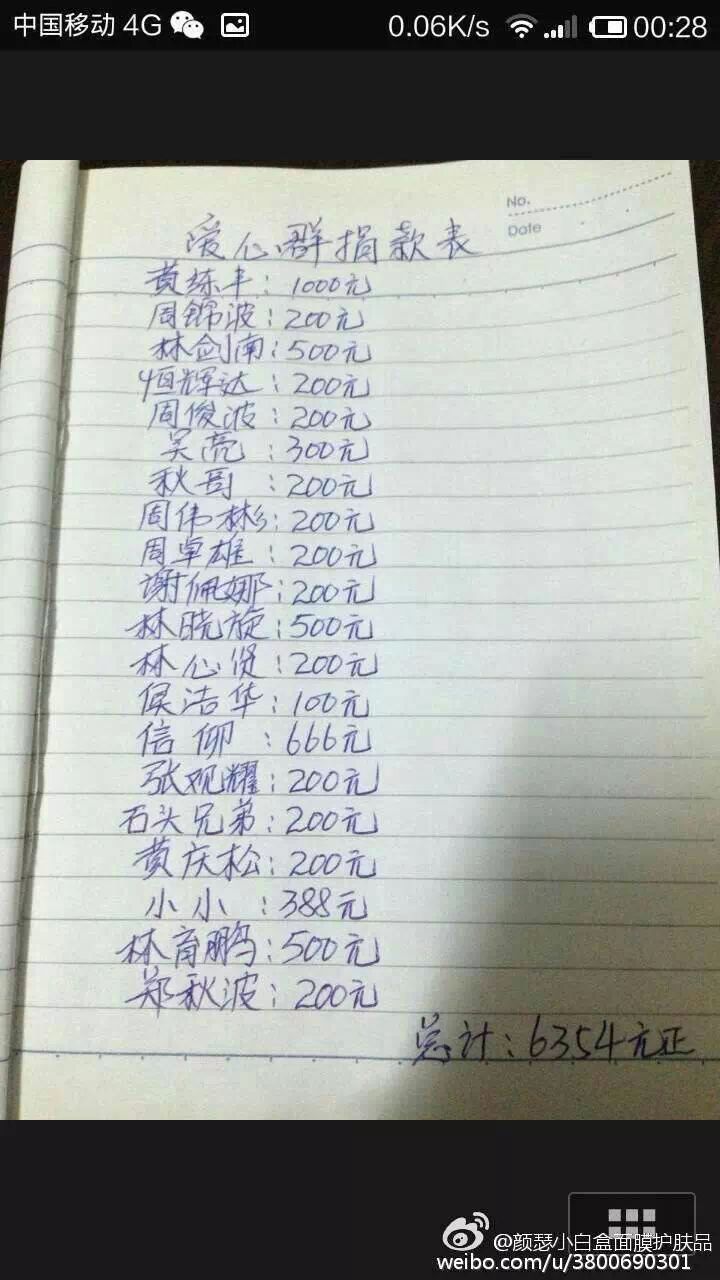 中国移动 4G 0.06K/s 00:28
No.
Date
爱心群捐款表
黄练丰：1000元
周锦波：200元
林剑南：500元
恒辉达：200元
周俊波：200元
吴亮：300元
秋哥：200元
周伟彬：200元
周卓雄：200元
谢佩娜：200元
林晓旋：500元
林心贤：200元
侯洁华：100元
信仰：666元
张观耀：200元
石头兄弟：200元
黄庆松：200元
小小：388元
林育鹏：500元
郑秋波：200元
总计：6354元正
@颜瑟小白盒面膜护肤品
weibo.com/u/3800690301